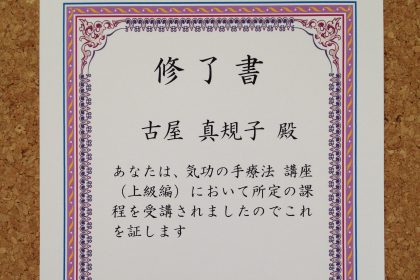 修了書
古屋 真規子 殿
あなたは、気功の手療法 講座
（上級編）において所定の課
程を受講されましたのでこれ
を証します